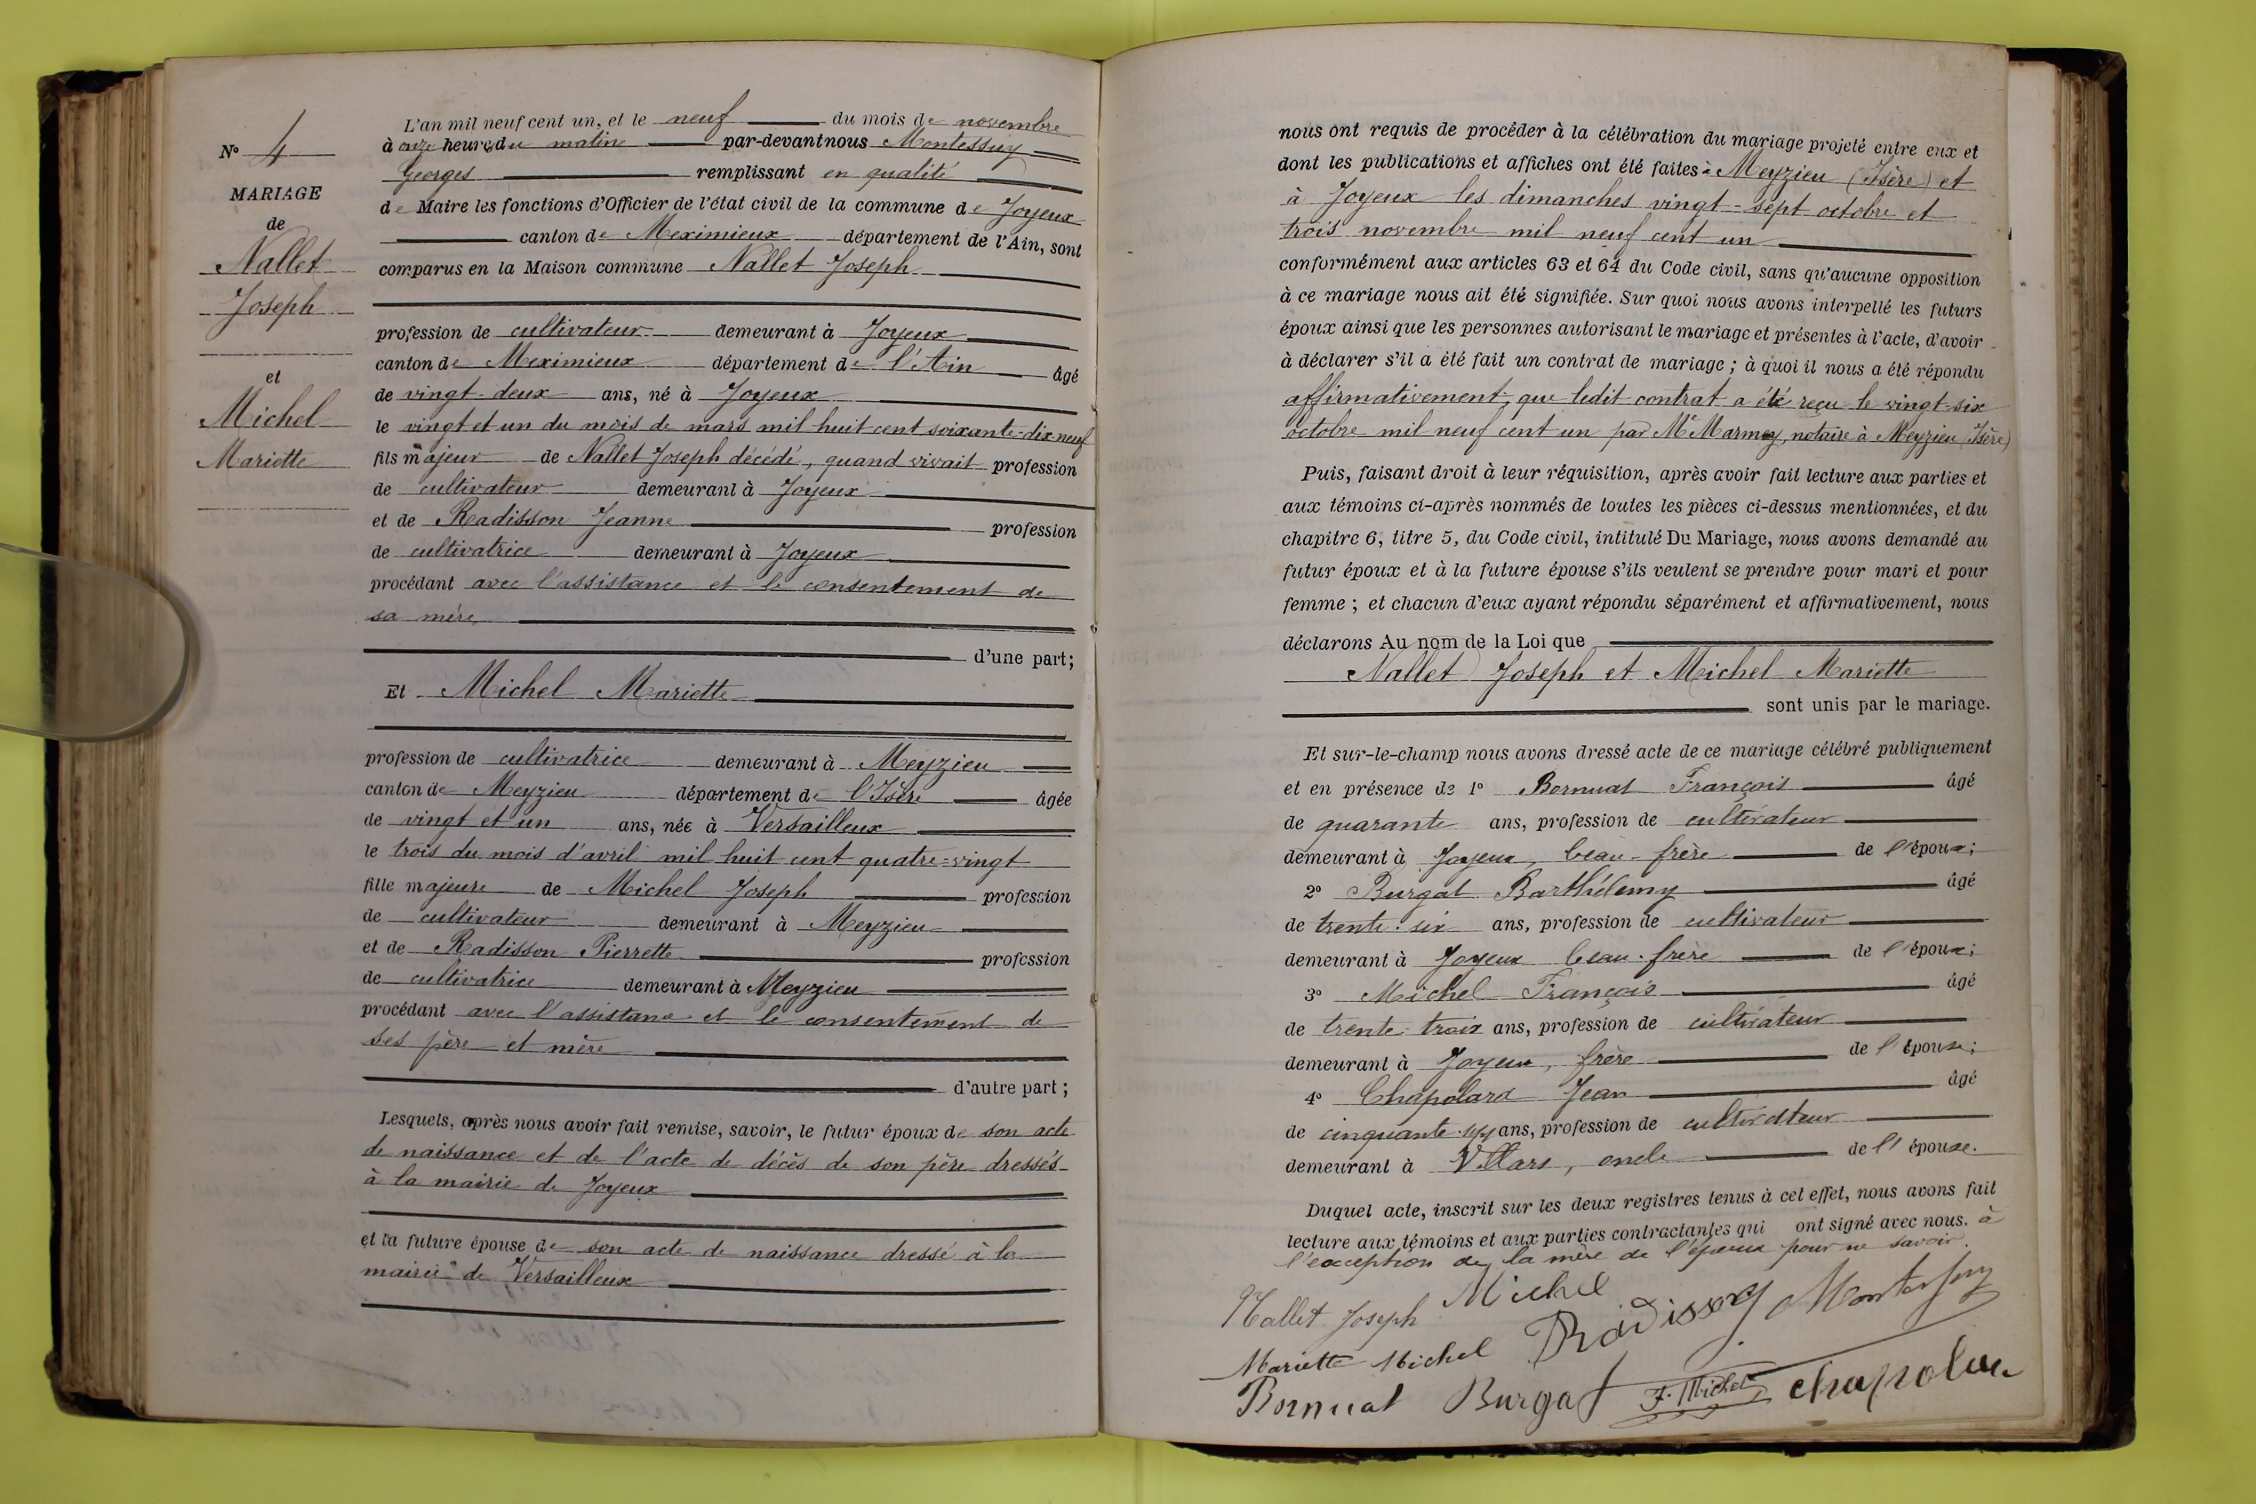 N° 4
MARIAGE
de
Nallet
Joseph
et
Michel
Mariette
L'an mil neuf cent un, et le neuf du mois de novembre
à onze heures du matin par-devant nous Montessuy
Georges remplissant en qualité
de Maire les fonctions d'Officier de l'état civil de la commune de Joyeux
canton de Meximieux département de l'Ain, sont
comparus en la Maison commune Nallet Joseph
profession de cultivateur demeurant à Joyeux
canton de Meximieux département de l'Ain âgé
de vingt-deux ans, né à Joyeux
le vingt et un du mois de mars mil huit cent soixante-dix-neuf
fils majeur de Nallet Joseph décédé, quand vivait profession
de cultivateur demeurant à Joyeux
et de Radisson Jeanne profession
de cultivatrice demeurant à Joyeux
procédant avec l'assistance et le consentement de
sa mère
d'une part;
Et Michel Mariette
profession de cultivatrice demeurant à Meyzieu
canton de Meyzieu département de l'Isère âgée
de vingt et un ans, née à Versailleux
le trois du mois d'avril mil huit cent quatre-vingt
fille majeure de Michel Joseph profession
de cultivateur demeurant à Meyzieu
et de Radisson Pierrette profession
de cultivatrice demeurant à Meyzieu
procédant avec l'assistance et le consentement de
ses père et mère
d'autre part;
Lesquels, après nous avoir fait remise, savoir, le futur époux de son acte
de naissance et de l'acte de décès de son père dressés
à la mairie de Joyeux
et la future épouse de son acte de naissance dressé à la
mairie de Versailleux
nous ont requis de procéder à la célébration du mariage projeté entre eux et
dont les publications et affiches ont été faites à Meyzieu (Isère) et
à Joyeux les dimanches vingt-sept octobre et
trois novembre mil neuf cent un
conformément aux articles 63 et 64 du Code civil, sans qu'aucune opposition
à ce mariage nous ait été signifiée. Sur quoi nous avons interpellé les futurs
époux ainsi que les personnes autorisant le mariage et présentes à l'acte, d'avoir
à déclarer s'il a été fait un contrat de mariage; à quoi il nous a été répondu
affirmativement, que ledit contrat a été reçu le vingt-six
octobre mil neuf cent un par Me Marmoy, notaire à Meyzieu (Isère)
Puis, faisant droit à leur réquisition, après avoir fait lecture aux parties et
aux témoins ci-après nommés de toutes les pièces ci-dessus mentionnées, et du
chapitre 6, titre 5, du Code civil, intitulé Du Mariage, nous avons demandé au
futur époux et à la future épouse s'ils veulent se prendre pour mari et pour
femme; et chacun d'eux ayant répondu séparément et affirmativement, nous
déclarons Au nom de la Loi que
Nallet Joseph et Michel Mariette
sont unis par le mariage.
Et sur-le-champ nous avons dressé acte de ce mariage célébré publiquement
et en présence de 1° Bornuat François âgé
de quarante ans, profession de cultivateur
demeurant à Joyeux, beau-frère de l'époux;
2° Burgat Barthélemy âgé
de trente-six ans, profession de cultivateur
demeurant à Joyeux beau-frère de l'époux;
3° Michel François âgé
de trente-trois ans, profession de cultivateur
demeurant à Joyeux, frère de l'épouse;
4° Chapolard Jean âgé
de cinquante ans, profession de cultivateur
demeurant à Villars, oncle de l'épouse.
Duquel acte, inscrit sur les deux registres tenus à cet effet, nous avons fait
lecture aux témoins et aux parties contractantes qui ont signé avec nous. à
l'exception de la mère de l'époux pour ne savoir.
Nallet Joseph Michel Radisson Montessuy
Mariette Michel
Bornuat Burgat F. Michel Chapolard